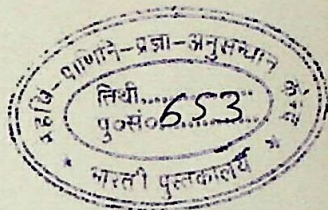 महर्षि-पाणिनि-प्रज्ञा-अनुसन्धान केन्द्र
तिथी..............
पु०सं० 653
* भारती पुस्तकालय *